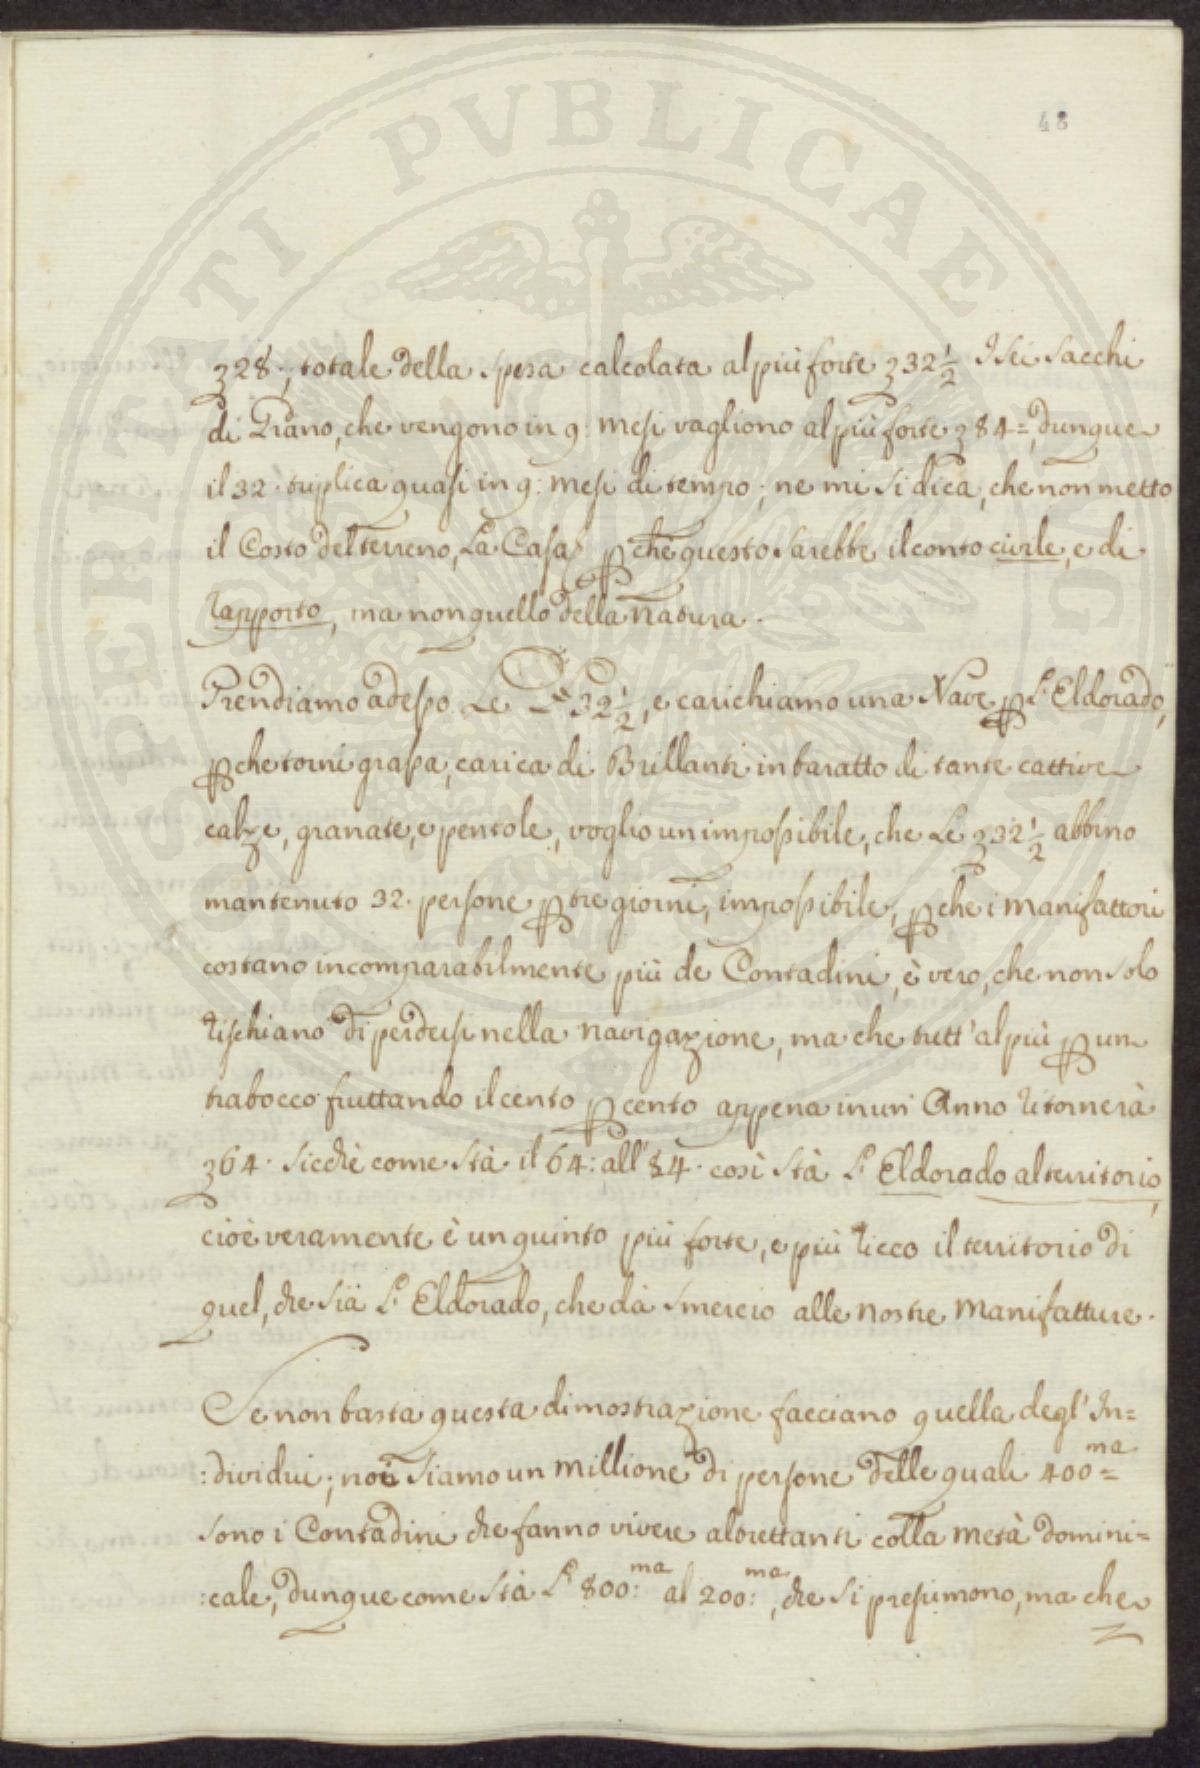 48
PROSPERITATI PVBLICAE AVGENDAE
ʒ28:, totale della spesa calcolata al più forte ʒ32½ I sei sacchi
di Grano, che vengono in 9: mesi vagliono al più forte ʒ84=, dunque
il 32· triplica quasi in 9: mesi di tempo; ne mi si dica, che non metto
il Costo del terreno, La Casa, pche questo sarebbe il conto civile, e di
rapporto, ma non quello della natura.
Prendiamo adesso Le ʒ32½, e carichiamo una Nave p L'Eldorado,
pche torni grassa, carica di Brillanti in baratto di tante cattive
calze, granate, e pentole, voglio un impossibile, che Le ʒ32½ abbino
mantenuto 32· persone p tre giorni, impossibile, pche i manifattori
costano incomparabilmente più de Contadini, è vero, che non solo
rischiano di perdersi nella navigazione, ma che tutt'al più p un
trabocco fruttando il cento p cento appena in un Anno ritornerà
ʒ64· sicchè come stà il 64: all'84· così stà L'Eldorado al territorio,
cioè veramente è un quinto più forte, e più ricco il territorio di
quel, che sia L'Eldorado, che dà smercio alle nostre manifatture.
Se non basta questa dimostrazione facciano quella degl'In=
:dividui; noi siamo un millione di persone delle quali 400=ma
sono i Contadini che fanno vivere altrettanti colla metà domini=
:cale, dunque come stà L'800:ma al 200:ma, che si presumono, ma che